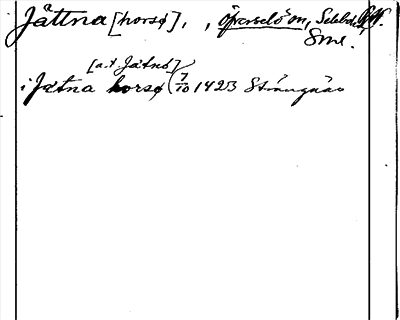 Jättna [horsø], , Öfverselö sn, Selebo
Sml.
[a.t Jätnö]
i Jätna horsø 7/10 1423 Strängnäs